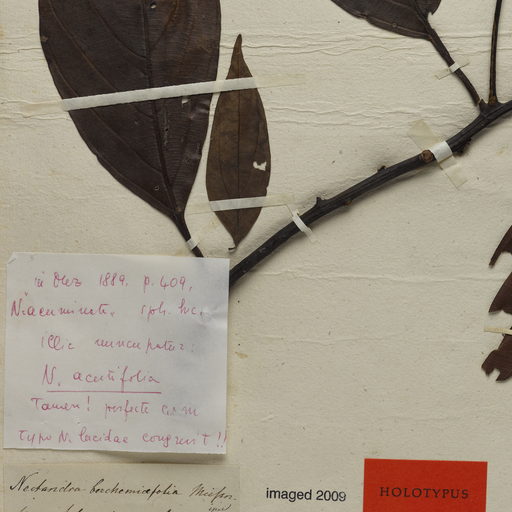 in Mez 1889. p. 409,
N. acuminata, sph. hic,
illic nuncupatur:
N. acutifolia
Tamen! perfecte cum
typo N. lucidae congruit!!
Nectandra berchemiaefolia Meissn.
imaged 2009
HOLOTYPUS